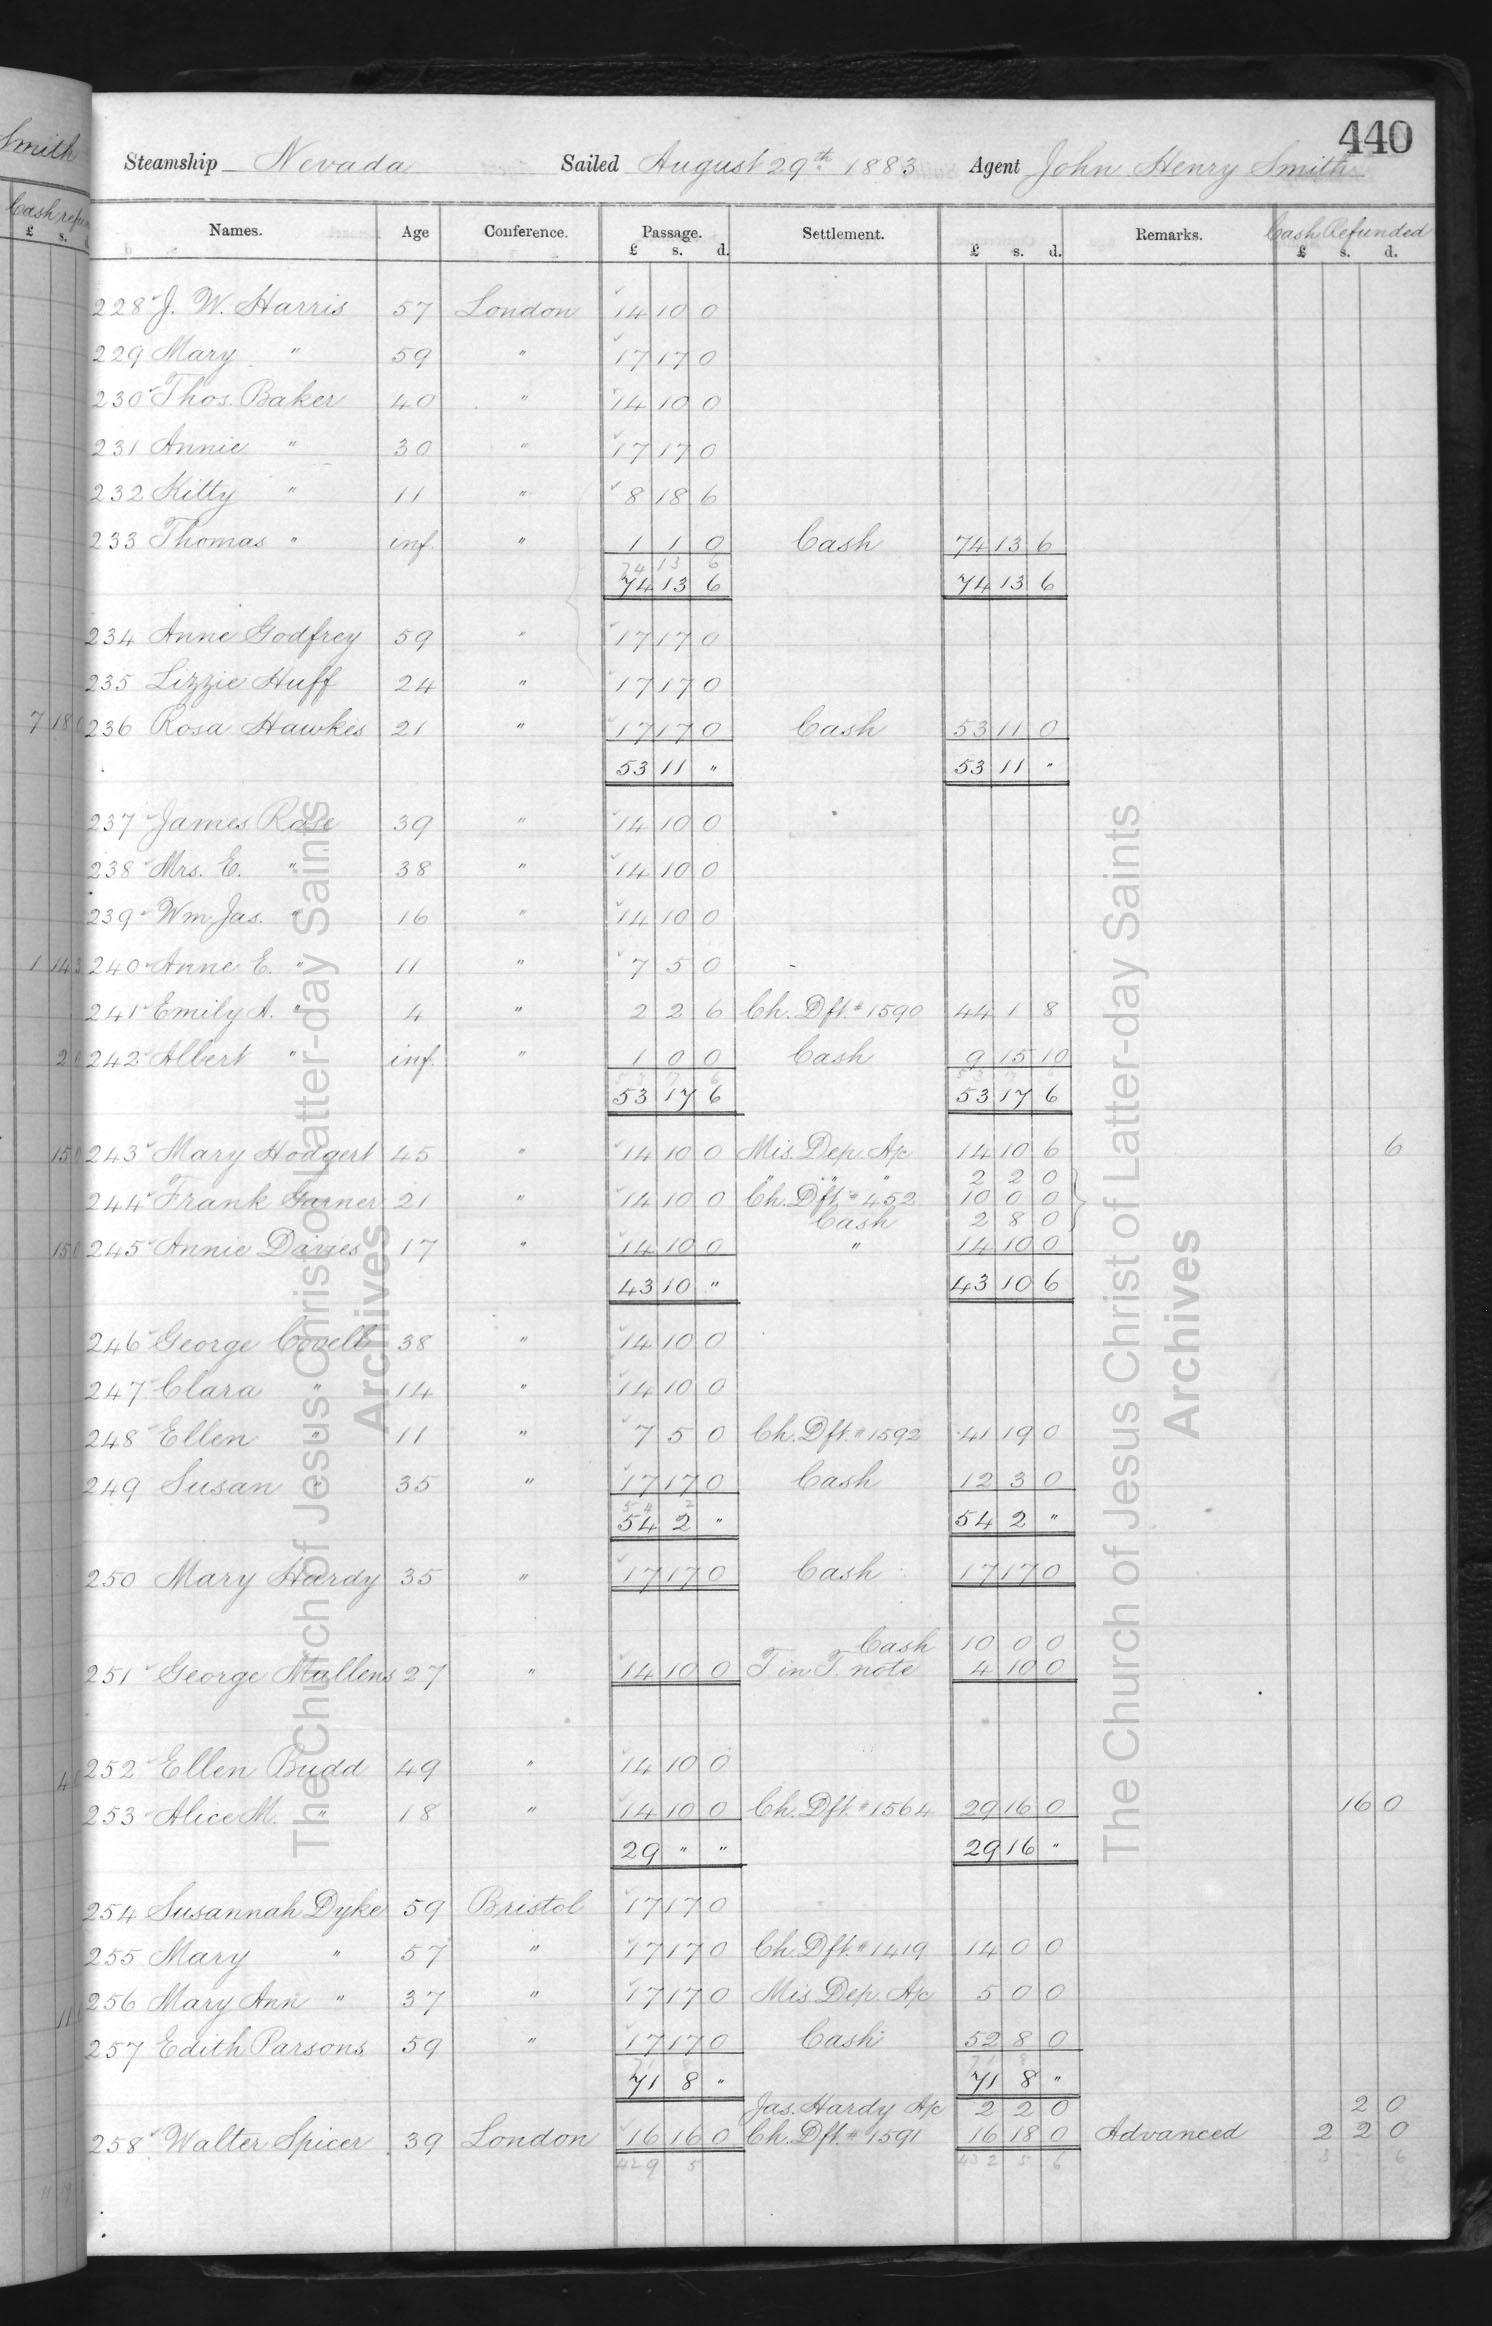 440
Steamship Nevada Sailed August 29th 1883 Agent John Henry Smith
Names. Age Conference. Passage. Settlement. Remarks. Cash Refunded
£ s. d. £ s. d. £ s. d.
228 J. W. Harris 57 London 14 10 0
229 Mary " 59 " 17 17 0
230 Thos. Baker 40 " 14 10 0
231 Annie " 30 " 17 17 0
232 Kitty " 11 " 8 18 6
233 Thomas " inf. " 1 1 0 Cash 74 13 6
74 13 6
74 13 6 74 13 6
234 Anne Godfrey 59 " 17 17 0
235 Lizzie Huff 24 " 17 17 0
236 Rosa Hawkes 21 " 17 17 0 Cash 53 11 0
53 11 " 53 11 "
237 James Rose 39 " 14 10 0
238 Mrs. E. " 38 " 14 10 0
239 Wm. Jas. " 16 " 14 10 0
240 Anne E. " 11 " 7 5 0
241 Emily A. " 4 " 2 2 6 Ch. Dft. # 1590 44 1 8
242 Albert " inf. " 1 0 0 Cash 9 15 10
53 17 6 53 17 6
243 Mary Hodgert 45 " 14 10 0 Mis. Dep. A/c 14 10 6 6
" " " 2 2 0
244 Frank Garner 21 " 14 10 0 Ch. Dft. # 452 10 0 0
Cash 2 8 0
245 Annie Davies 17 " 14 10 0 " 14 10 0
43 10 " 43 10 6
246 George Covell 38 " 14 10 0
247 Clara " 14 " 14 10 0
248 Ellen " 11 " 7 5 0 Ch. Dft. # 1592 41 19 0
249 Susan " 35 " 17 17 0 Cash 12 3 0
54 2
54 2 " 54 2 "
250 Mary Hardy 35 " 17 17 0 Cash 17 17 0
Cash 10 0 0
251 George Mullens 27 " 14 10 0 T in T. note 4 10 0
252 Ellen Budd 49 " 14 10 0
253 Alice M. " 18 " 14 10 0 Ch. Dft. # 1564 29 16 0 16 0
29 " " 29 16 "
254 Susannah Dyke 59 Bristol 17 17 0
255 Mary " 57 " 17 17 0 Ch. Dft. # 1419 14 0 0
256 Mary Ann " 37 " 17 17 0 Mis Dep. A/c 5 0 0
257 Edith Parsons 59 " 17 17 0 Cash 52 8 0
71 8 " 71 8 "
Jas. Hardy A/c 2 2 0 2 0
258 Walter Spicer 39 London 16 16 0 Ch. Dft. # 1591 16 18 0 Advanced 2 2 0
429 5 432 5 6 3 6
Smith
Cash refun
£ s.
The Church of Jesus Christ of Latter-day Saints
Archives
The Church of Jesus Christ of Latter-day Saints
Archives